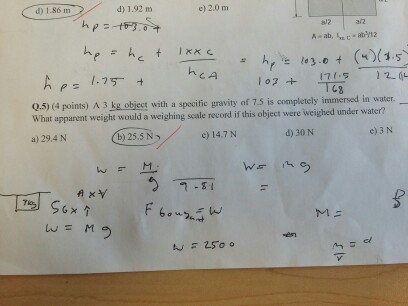 d) 1.86 m d) 1.92 m e) 2.0 m
b/2 b/2
A = ab, I = ab³/12
hp = 103.0 +
hp = hc + Ixxc / hcA = hp = 103.0 +
hp = 1.75 + 103 + 171.5 / 168
Q.5) (4 points) A 3 kg object with a specific gravity of 7.5 is completely immersed in water.
What apparent weight would a weighing scale record if this object were weighed under water?
a) 29.4 N b) 25.5 N c) 14.7 N d) 30 N e) 3 N
w = M / g 9.81 W = mg
=
SGx
W = Mg
F bouynt = W
M =
w = 2500
m / v = d